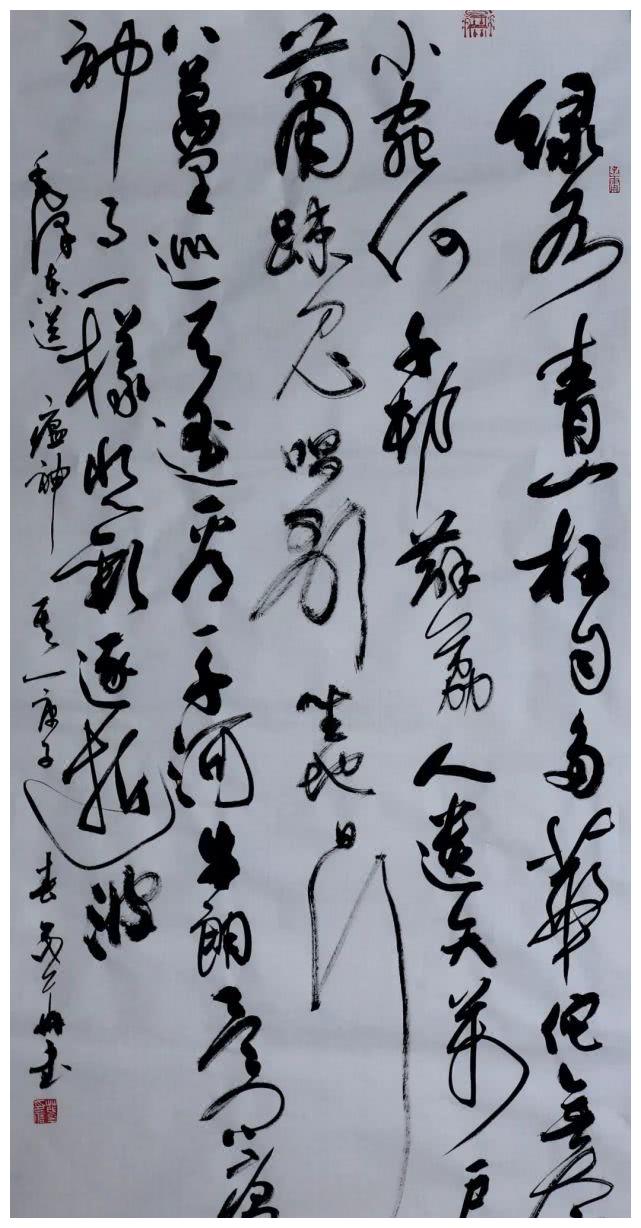 绿水青山枉自多華佗無奈
小虫何千村薜荔人遗矢萬户
萧疏鬼唱歌坐地日行
八萬里巡天遥看一千河牛郎欲问瘟
神事一樣悲歡逐逝波
毛澤东送瘟神其一庚子春书